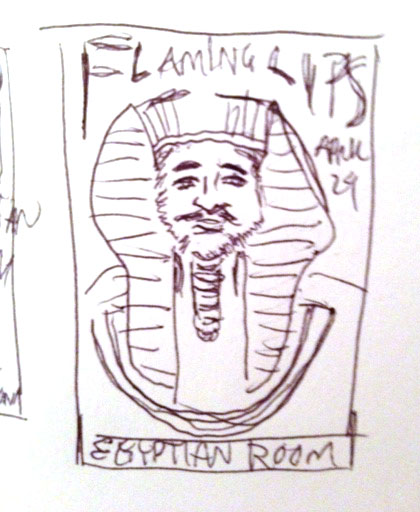 FLAMING LIPS
APRIL
29
EGYPTIAN ROOM